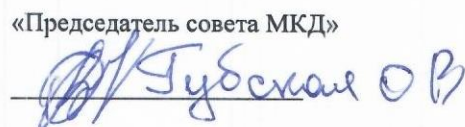 «Председатель совета МКД»
Губская О В